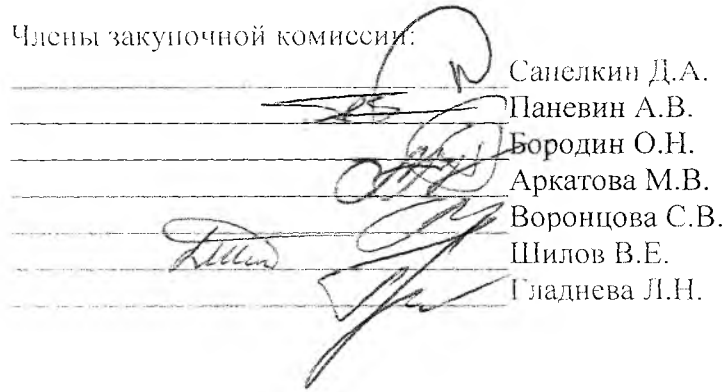 Члены закупочной комиссии:
Санелкин Д.А.
Паневин А.В.
Бородин О.Н.
Аркатова М.В.
Воронцова С.В.
Шилов В.Е.
Гладнева Л.Н.